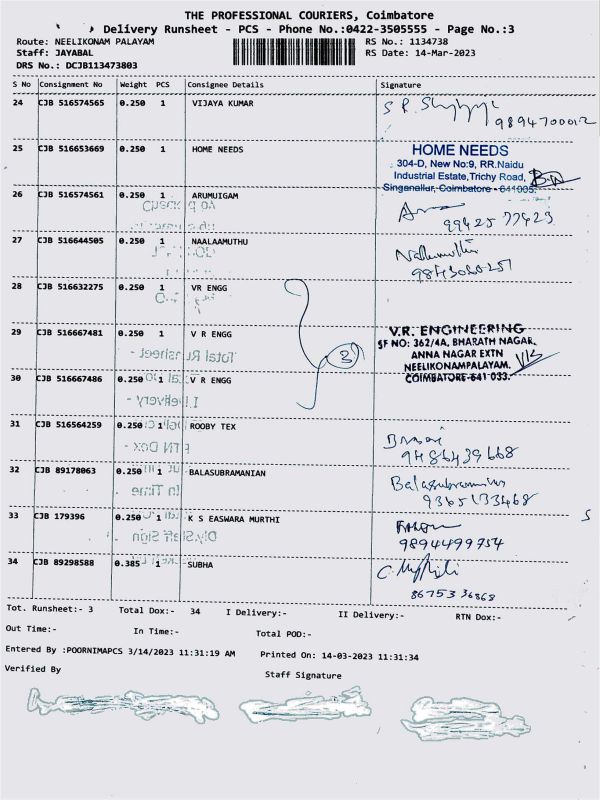 THE PROFESSIONAL COURIERS, Coimbatore
Delivery Runsheet - PCS - Phone No.:0422-3505555 - Page No.:3
Route: NEELIKONAM PALAYAM RS No.: 1134738
Staff: JAYABAL RS Date: 14-Mar-2023
DRS No.: DCJB113473803
S No Consignment No Weight PCS Consignee Details Signature
24 CJB 516574565 0.250 1 VIJAYA KUMAR
9894700012
25 CJB 516653669 0.250 1 HOME NEEDS
HOME NEEDS
304-D, New No:9, RR.Naidu
Industrial Estate,Trichy Road,
Singanallur, Coimbatore - 641005.
26 CJB 516574561 0.250 1 ARUMUIGAM
99425 77423
27 CJB 516644505 0.250 1 NAALAAMUTHU
28 CJB 516632275 0.250 1 VR ENGG
29 CJB 516667481 0.250 1 V R ENGG
3
V.R. ENGINEERING
SF NO: 362/4A, BHARATH NAGAR,
ANNA NAGAR EXTN
NEELIKONAMPALAYAM.
COIMBATORE-641 033.
30 CJB 516667486 0.250 1 V R ENGG
31 CJB 516564259 0.250 1 ROOBY TEX
9486439668
32 CJB 89178063 0.250 1 BALASUBRAMANIAN
Balasubramanian
9365133468
33 CJB 179396 0.250 1 K S EASWARA MURTHI
9894499754
34 CJB 89298588 0.385 1 SUBHA
8675336868
Tot. Runsheet:- 3 Total Dox:- 34 I Delivery:- II Delivery:- RTN Dox:-
Out Time:- In Time:- Total POD:-
Entered By :POORNIMAPCS 3/14/2023 11:31:19 AM Printed On: 14-03-2023 11:31:34
Verified By Staff Signature